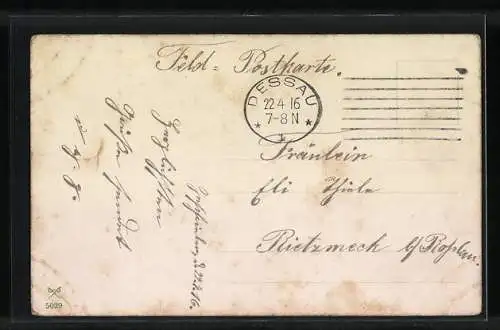 Feld-Postkarte.
DESSAU
22 4 16
7-8 N
Fräulein
Eli Thiele
Rietzmeck b/Roßlau.
Herzlichsten
Grüße sendet
5029